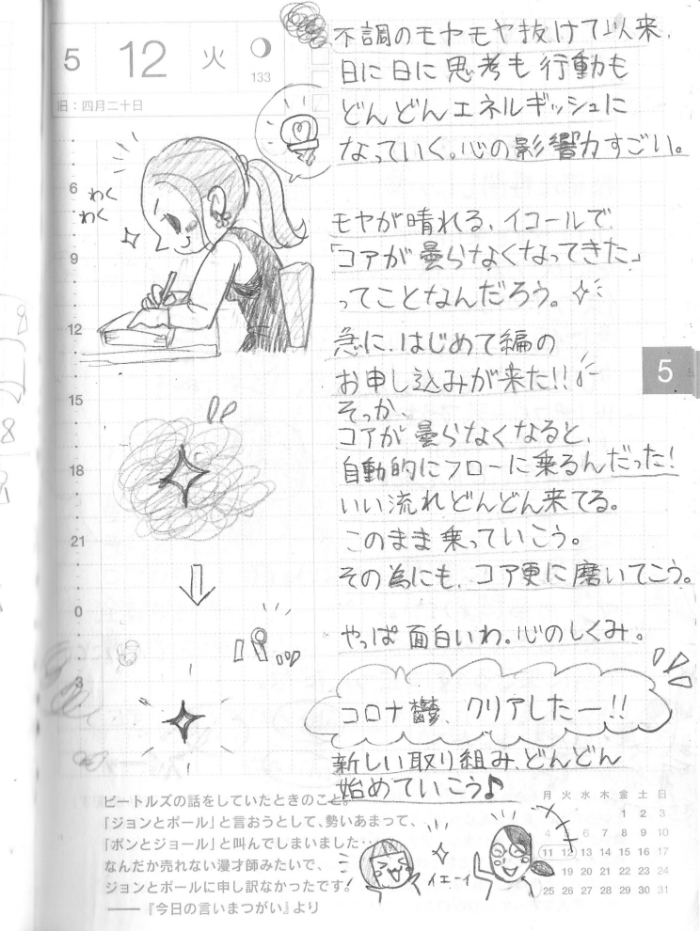 5 12 火
133
旧:四月二十日
不調のモヤモヤ抜けて以来、
日に日に思考も行動も
どんどんエネルギッシュに
なっていく。心の影響力すごい。
わく
わく
モヤが晴れる、イコールで
「コアが曇らなくなってきた」
ってことなんだろう。
急に、はじめて編の
お申し込みが来た!!
そっか、
コアが曇らなくなると、
自動的にフローに乗るんだった!
いい流れどんどん来てる。
このまま乗っていこう。
その為にも、コア更に磨いてこう。
やっぱ面白いわ。心のしくみ。
コロナ鬱、クリアしたー!!
新しい取り組み、どんどん
始めていこう♪
イエーイ
6
9
12
15
18
21
0
3
5
ビートルズの話をしていたときのこと。
「ジョンとポール」と言おうとして、勢いあまって、
「ポンとジョール」と叫んでしまいました…
なんだか売れない漫才師みたいで、
ジョンとポールに申し訳なかったです!
――『今日の言いまつがい』より
月 火 水 木 金 土 日
1 2 3
4 8 9 10
11 12 13 14 15 16 17
19 20 21 22 23 24
25 26 27 28 29 30 31